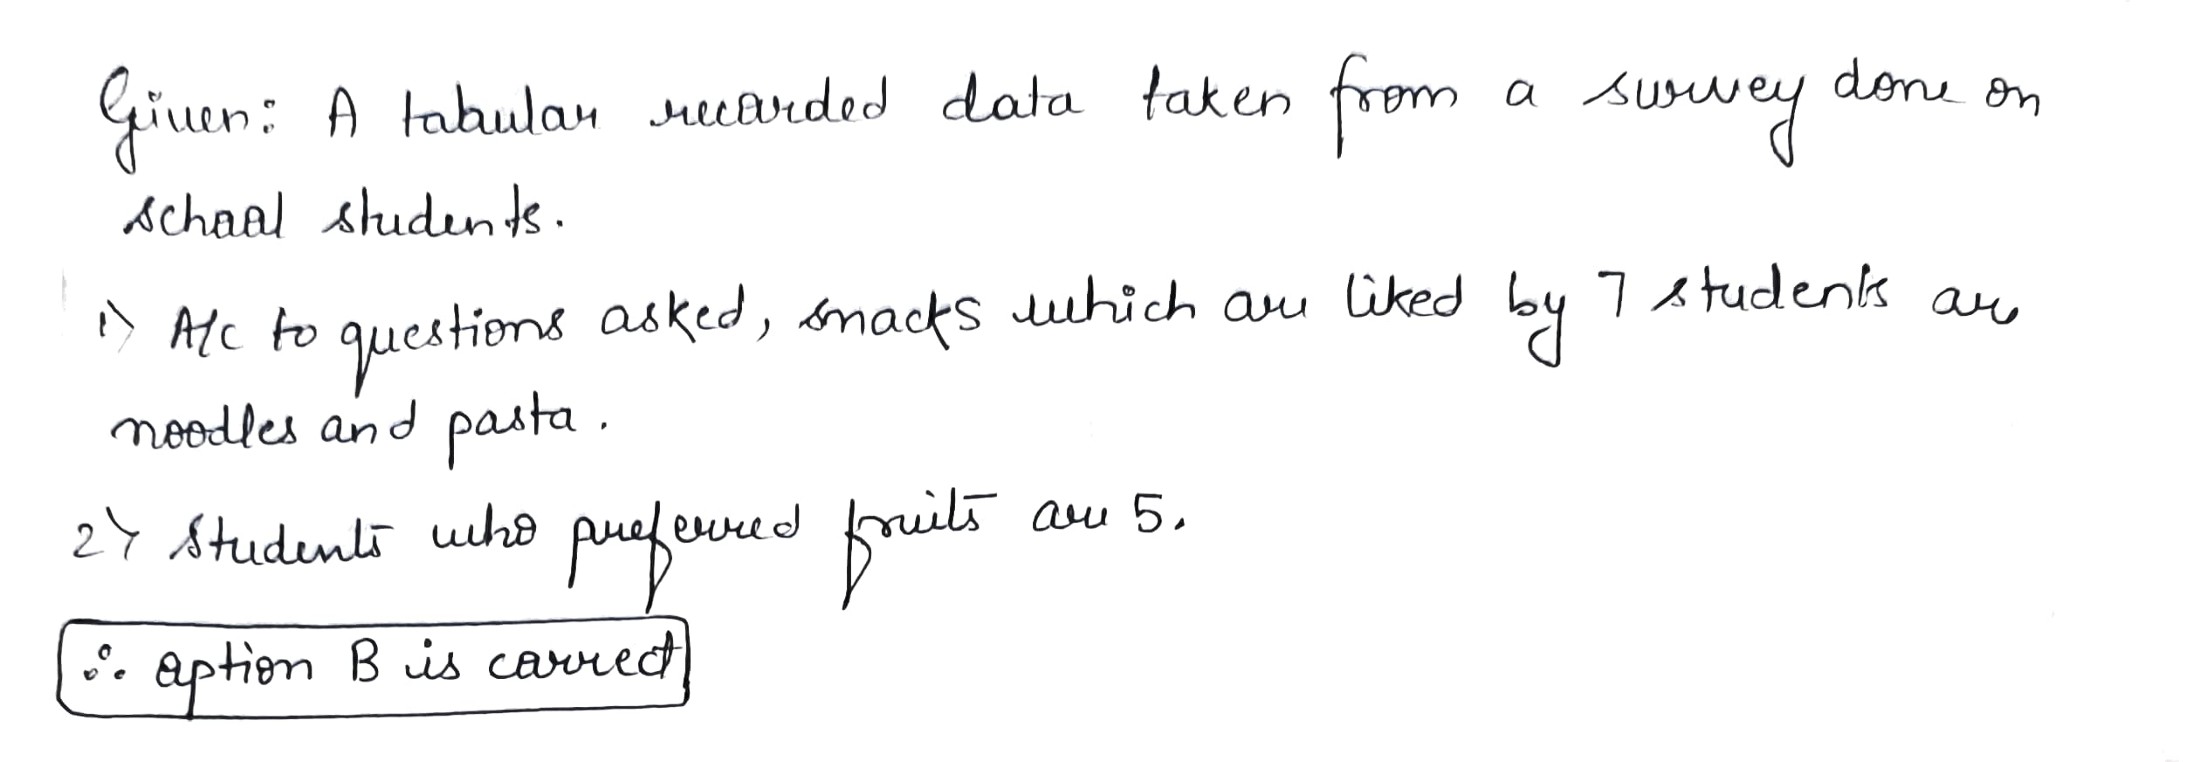 Given: A tabular recorded data taken from a survey done on
school students.
1) A/c to questions asked, snacks which are liked by 7 students are
noodles and pasta.
2) Students who preferred fruits are 5.
∴ option B is correct